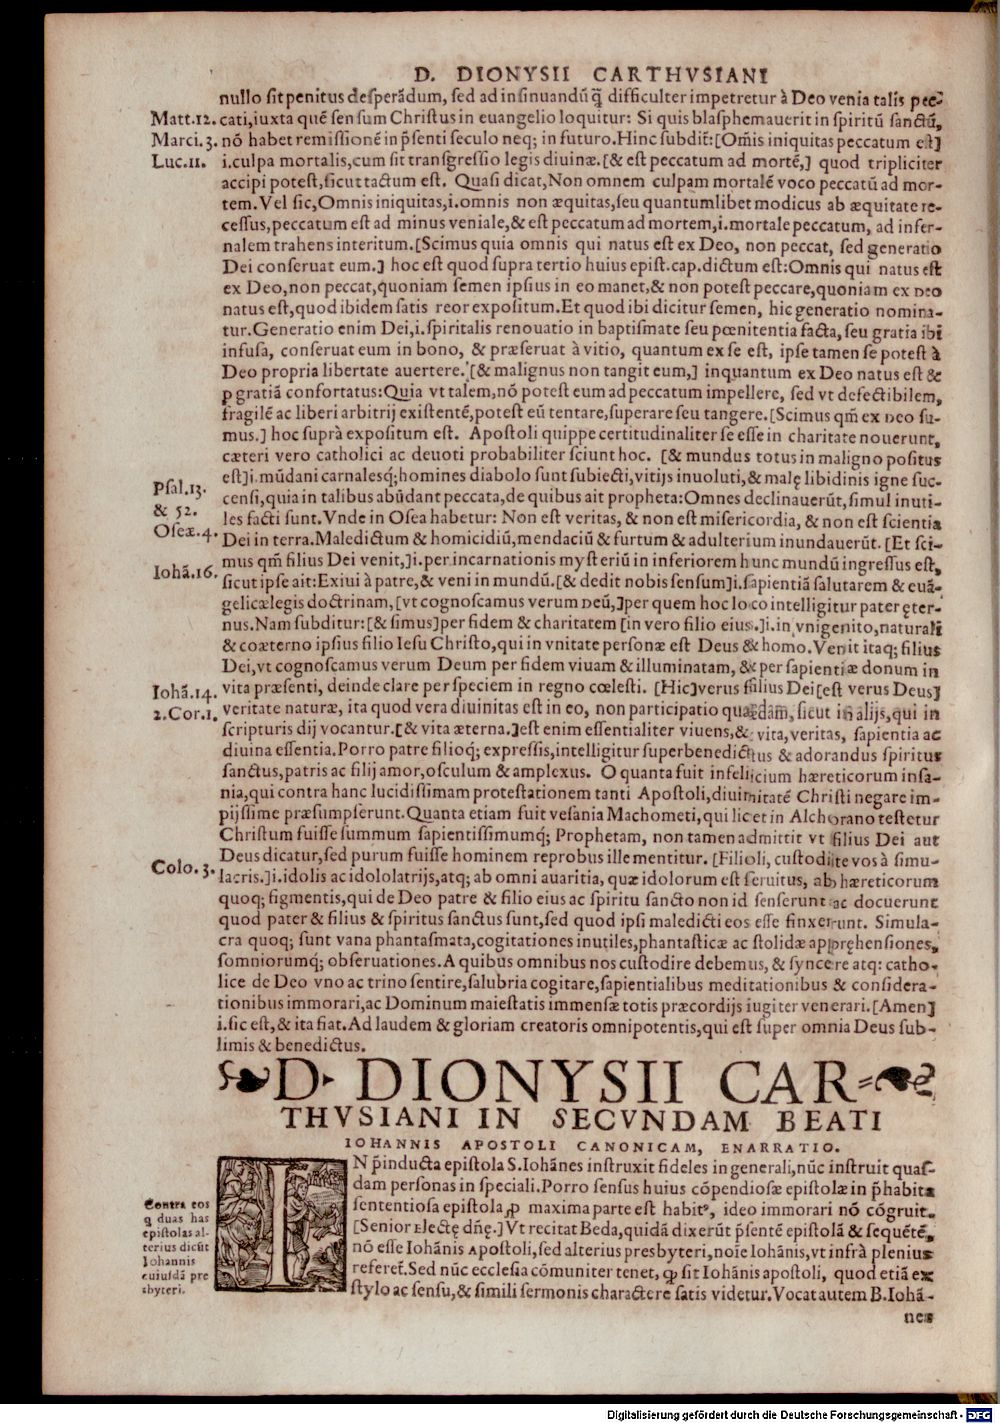 D. DIONYSII CARTHVSIANI
nullo sit penitus desperādum, sed ad insinuandū q̄ difficulter impetretur à Deo venia talis pec-
Matt.12. cati, iuxta quē sensum Christus in euangelio loquitur: Si quis blasphemauerit in spiritū sanctū,
Marci.3. nō habet remissionē in p̄senti seculo neq; in futuro. Hinc subdit̄: [Om̄is iniquitas peccatum est]
Luc.11. i. culpa mortalis, cum sit transgressio legis diuinæ. [& est peccatum ad mortē,] quod tripliciter
accipi potest, sicut tactum est. Quasi dicat, Non omnem culpam mortalē voco peccatū ad mor-
tem. Vel sic, Omnis iniquitas, i. omnis non æquitas, seu quantumlibet modicus ab æquitate re-
cessus, peccatum est ad minus veniale, & est peccatum ad mortem, i. mortale peccatum, ad infer-
nalem trahens interitum. [Scimus quia omnis qui natus est ex Deo, non peccat, sed generatio
Dei conseruat eum.] hoc est quod supra tertio huius epist. cap. dictum est: Omnis qui natus est
ex Deo, non peccat, quoniam semen ipsius in eo manet, & non potest peccare, quoniam ex Deo
natus est, quod ibidem satis reor expositum. Et quod ibi dicitur semen, hic generatio nomina-
tur. Generatio enim Dei, i. spiritalis renouatio in baptismate seu pœnitentia facta, seu gratia ibi
infusa, conseruat eum in bono, & præseruat à vitio, quantum ex se est, ipse tamen se potest à
Deo propria libertate auertere. [& malignus non tangit eum,] inquantum ex Deo natus est &
ꝑ gratiā confortatus: Quia vt talem, nō potest eum ad peccatum impellere, sed vt defectibilem,
fragilē ac liberi arbitrij existentē, potest eū tentare, superare seu tangere. [Scimus qm̄ ex Deo su-
mus.] hoc suprà expositum est. Apostoli quippe certitudinaliter se esse in charitate nouerunt,
cæteri vero catholici ac deuoti probabiliter sciunt hoc. [& mundus totus in maligno positus
est] i. mūdani carnalesq; homines diabolo sunt subiecti, vitijs inuoluti, & malę libidinis igne suc-
Psal.13. censi, quia in talibus abūdant peccata, de quibus ait propheta: Omnes declinauerūt, simul inuti-
& 52. les facti sunt. Vnde in Osea habetur: Non est veritas, & non est misericordia, & non est scientia
Oseæ.4. Dei in terra. Maledictum & homicidiū, mendaciū & furtum & adulterium inundauerūt. [Et sci-
mus qm̄ filius Dei venit,] i. per incarnationis mysteriū in inferiorem hunc mundū ingressus est,
Iohā.16. sicut ipse ait: Exiui à patre, & veni in mundū. [& dedit nobis sensum] i. sapientiā salutarem & euā-
gelicæ legis doctrinam, [vt cognoscamus verum Deū,] per quem hoc loco intelligitur pater ęter-
nus. Nam subditur: [& simus] per fidem & charitatem [in vero filio eius.] i. in vnigenito, naturali
& coæterno ipsius filio Iesu Christo, qui in vnitate personæ est Deus & homo. Venit itaq; filius
Dei, vt cognoscamus verum Deum per fidem viuam & illuminatam, & per sapientiæ donum in
Iohā.14. vita præsenti, deinde clare per speciem in regno cœlesti. [Hic] verus filius Dei [est verus Deus]
2.Cor.1. veritate naturæ, ita quod vera diuinitas est in eo, non participatio quædam, sicut in alijs, qui in
scripturis dij vocantur. [& vita æterna.] est enim essentialiter viuens, & vita, veritas, sapientia ac
diuina essentia. Porro patre filioq; expressis, intelligitur superbenedictus & adorandus spiritus
sanctus, patris ac filij amor, osculum & amplexus. O quanta fuit infelicium hæreticorum insa-
nia, qui contra hanc lucidissimam protestationem tanti Apostoli, diuinitatē Christi negare im-
pijssime præsumpserunt. Quanta etiam fuit vesania Machometi, qui licet in Alchorano testetur
Christum fuisse summum sapientissimumq; Prophetam, non tamen admittit vt filius Dei aut
Deus dicatur, sed purum fuisse hominem reprobus ille mentitur. [Filioli, custodite vos à simu-
Colo.3. lacris.] i. idolis ac idololatrijs, atq; ab omni auaritia, quæ idolorum est seruitus, ab hæreticorum
quoq; figmentis, qui de Deo patre & filio eius ac spiritu sancto non id senserunt ac docuerunt
quod pater & filius & spiritus sanctus sunt, sed quod ipsi maledicti eos esse finxerunt. Simula-
cra quoq; sunt vana phantasmata, cogitationes inutiles, phantasticæ ac stolidæ appręhensiones,
somniorumq; obseruationes. A quibus omnibus nos custodire debemus, & syncere atq: catho-
lice de Deo vno ac trino sentire, salubria cogitare, sapientialibus meditationibus & considera-
tionibus immorari, ac Dominum maiestatis immensæ totis præcordijs iugiter venerari. [Amen]
i. sic est, & ita fiat. Ad laudem & gloriam creatoris omnipotentis, qui est super omnia Deus sub-
limis & benedictus.
D. DIONYSII CAR-
THVSIANI IN SECVNDAM BEATI
IOHANNIS APOSTOLI CANONICAM, ENARRATIO.
IN p̄inducta epistola S. Iohānes instruxit fideles in generali, nūc instruit quas-
dam personas in speciali. Porro sensus huius cōpendiosæ epistolæ in p̄habita
sententiosa epistola ꝓ maxima parte est habit', ideo immorari nō cōgruit.
[Senior Electę dn̄ę.] Vt recitat Beda, quidā dixerūt p̄sentē epistolā & sequētē,
nō esse Iohānis Apostoli, sed alterius presbyteri, noīe Iohānis, vt infrà plenius
referet̄. Sed nūc ecclesia cōmuniter tenet, ꝙ sit Iohānis apostoli, quod etiā ex
stylo ac sensu, & simili sermonis charactere satis videtur. Vocat autem B. Iohā-
nes
Contra eos
q duas has
epistolas al-
terius dicūt
Iohannis
cuiusdā pre
sbyteri.
Digitalisierung gefördert durch die Deutsche Forschungsgemeinschaft - DFG